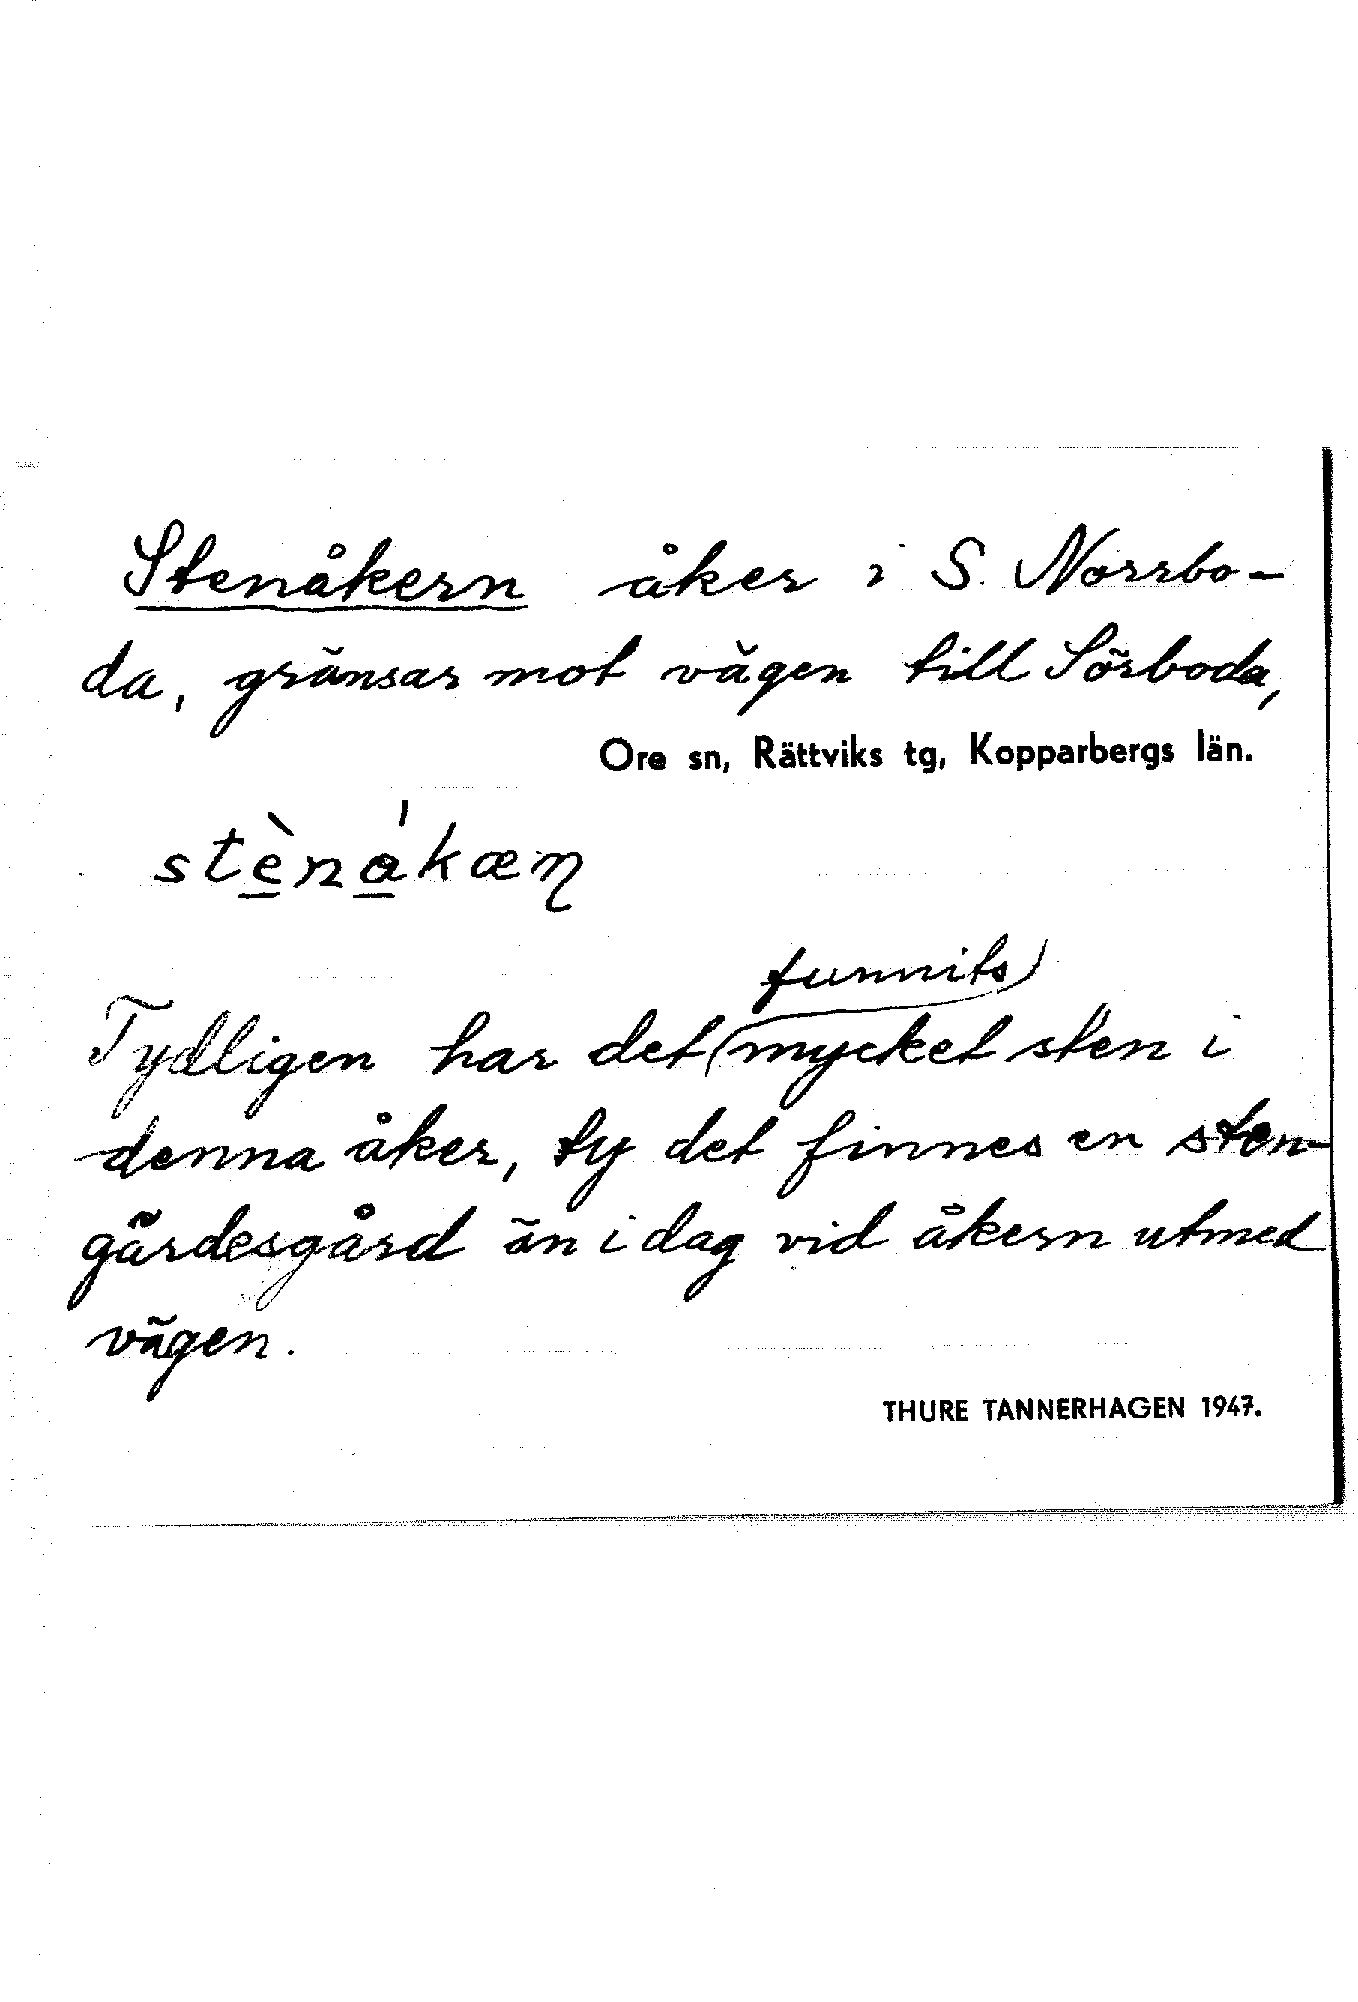 Stenåkern åker i S. Norrbo-
da, gränsar mot vägen till Sörboda,
Ore sn, Rättviks tg, Kopparbergs län.
stènákæn
funnits
Tydligen har det mycket sten i
denna åker, ty det finnes en sten-
gärdesgård än i dag vid åkern utmed
vägen.
THURE TANNERHAGEN 1947.